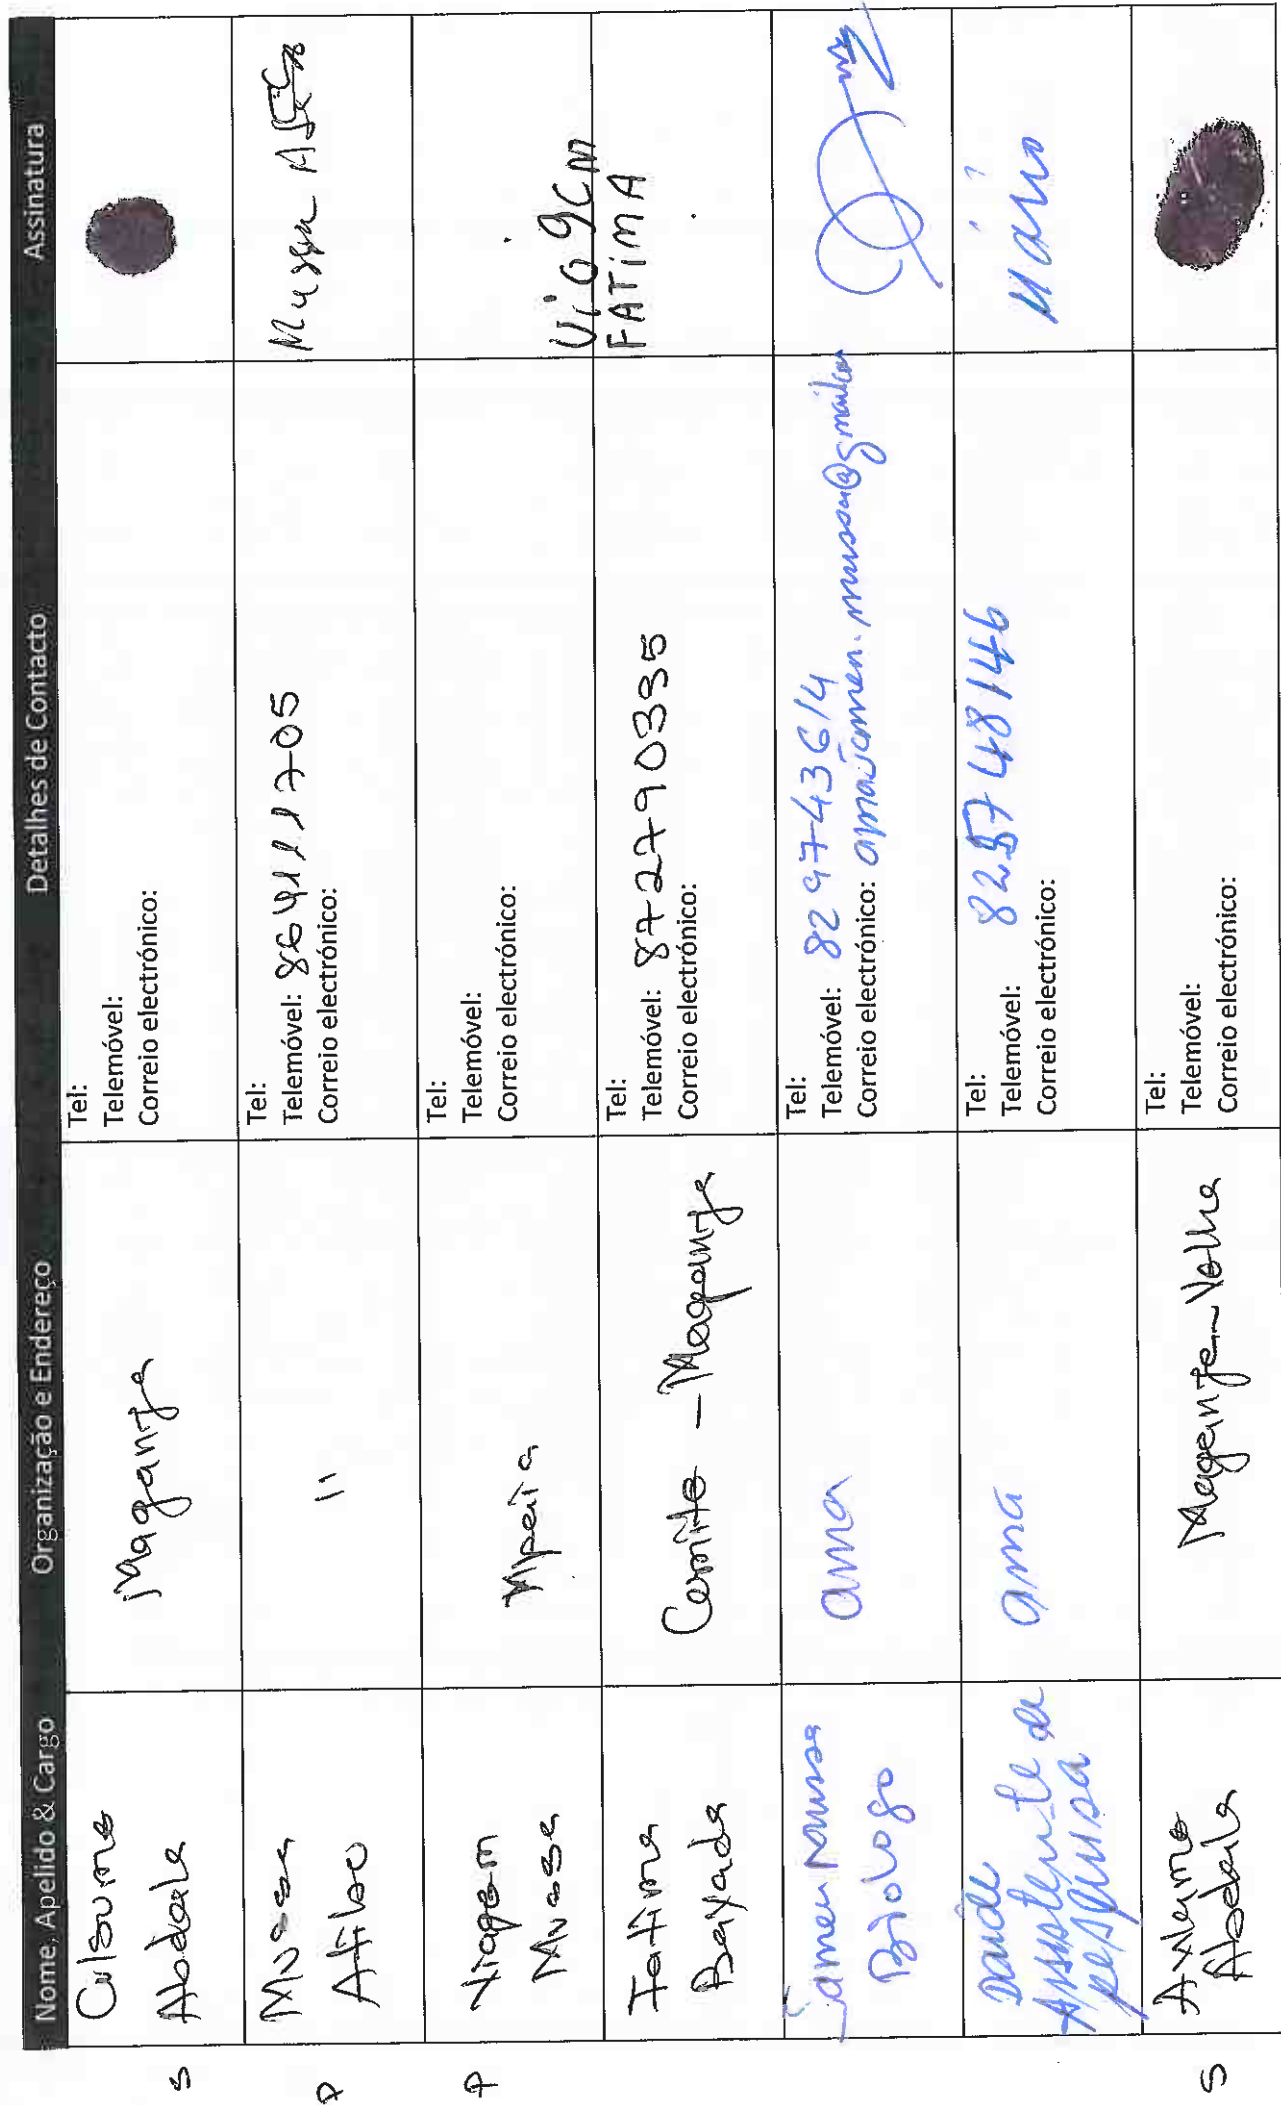 Nome, Apelido & Cargo Organização e Endereço Detalhes de Contacto Assinatura
S
Culsume
Abdala
Maganja
Tel:
Telemóvel:
Correio electrónico:
P
Mussa
Atibo
"
Tel:
Telemóvel: 864111705
Correio electrónico:
Mussa
P
Viagem
Mussa
Mpaia
Tel:
Telemóvel:
Correio electrónico:
Viagem
Fatima
Bayada
Comite - Maganja
Tel:
Telemóvel: 872790395
Correio electrónico:
FATimA
Jamen Mussa
Biologo
ama
Tel:
Telemóvel: 829743614
Correio electrónico:
Daude
Assistente de
pesquisa
ama
Tel:
Telemóvel: 825748146
Correio electrónico:
S
Abdala
Maganja-Velha
Tel:
Telemóvel:
Correio electrónico: